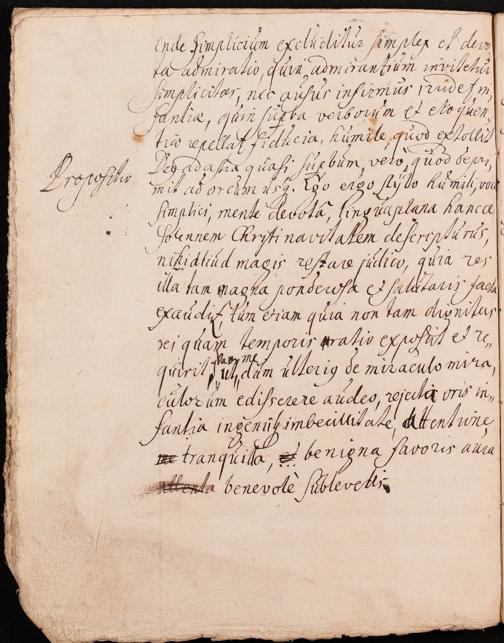 inde simplicium excluditur simplex et devo
ta admiratio, quin admirantium invitetur
simplicitas, nec ausus infirmus ruidef in,
fantiæ, quin supra verborum et eloquen
tiæ repellat fiducia, humile, quod extollit
ad astra quasi supbum, vero, quod depri,
mit ad orcum usq. Ego ergo stylo humili, voce
Propositio
simplici, mente devotâ, linguaplana hancce
solennem Chrysti navitatem descrypturus,
nihil aliud magis restare judico, quia res
illa tam magna ponderosa et salutaris facta
exaudit, tum etiam quia non tam dignitas
rei quam temporis ratio exposcit et re,
quirit, ut dum ulteriq de miraculo mira,
culorum edisserere audeo, rejectâ oris in,,
fantia ingenyiq imbecillitate, attentione
tranquilla, benigna favoris aura
benevolè sublevetis.